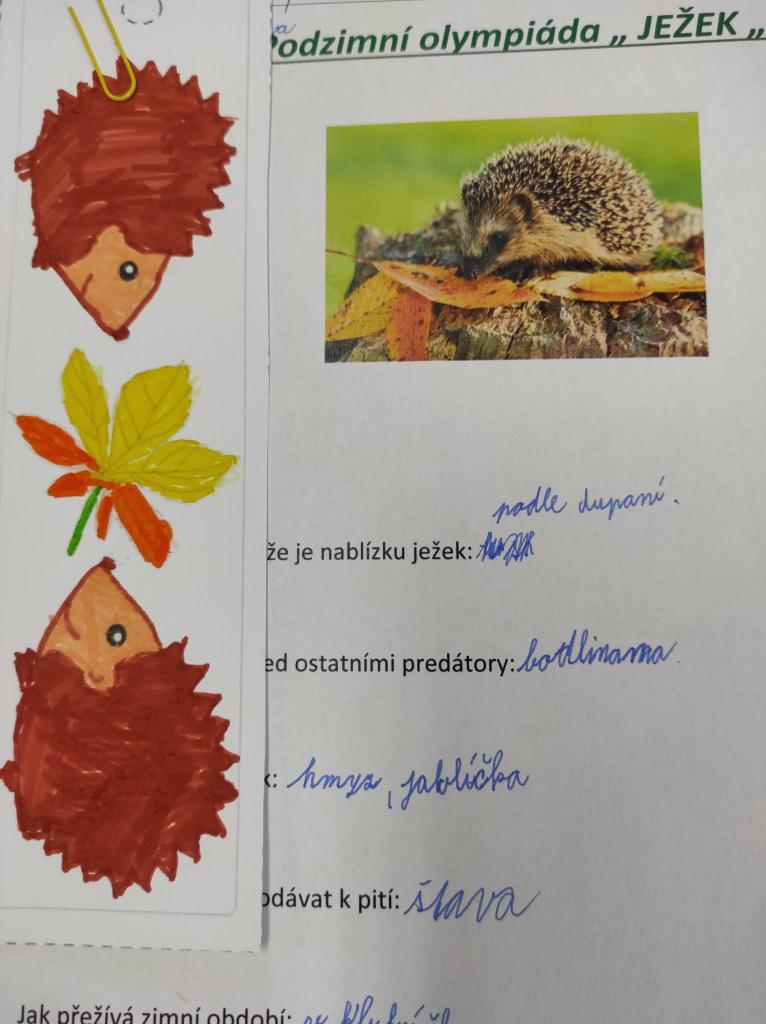 Podzimní olympiáda „ JEŽEK „
podle dupaní.
že je nablízku ježek:
ed ostatními predátory: bodlinama
k: hmyz, jablíčka
odávat k pití: šťáva
Jak přežívá zimní období: